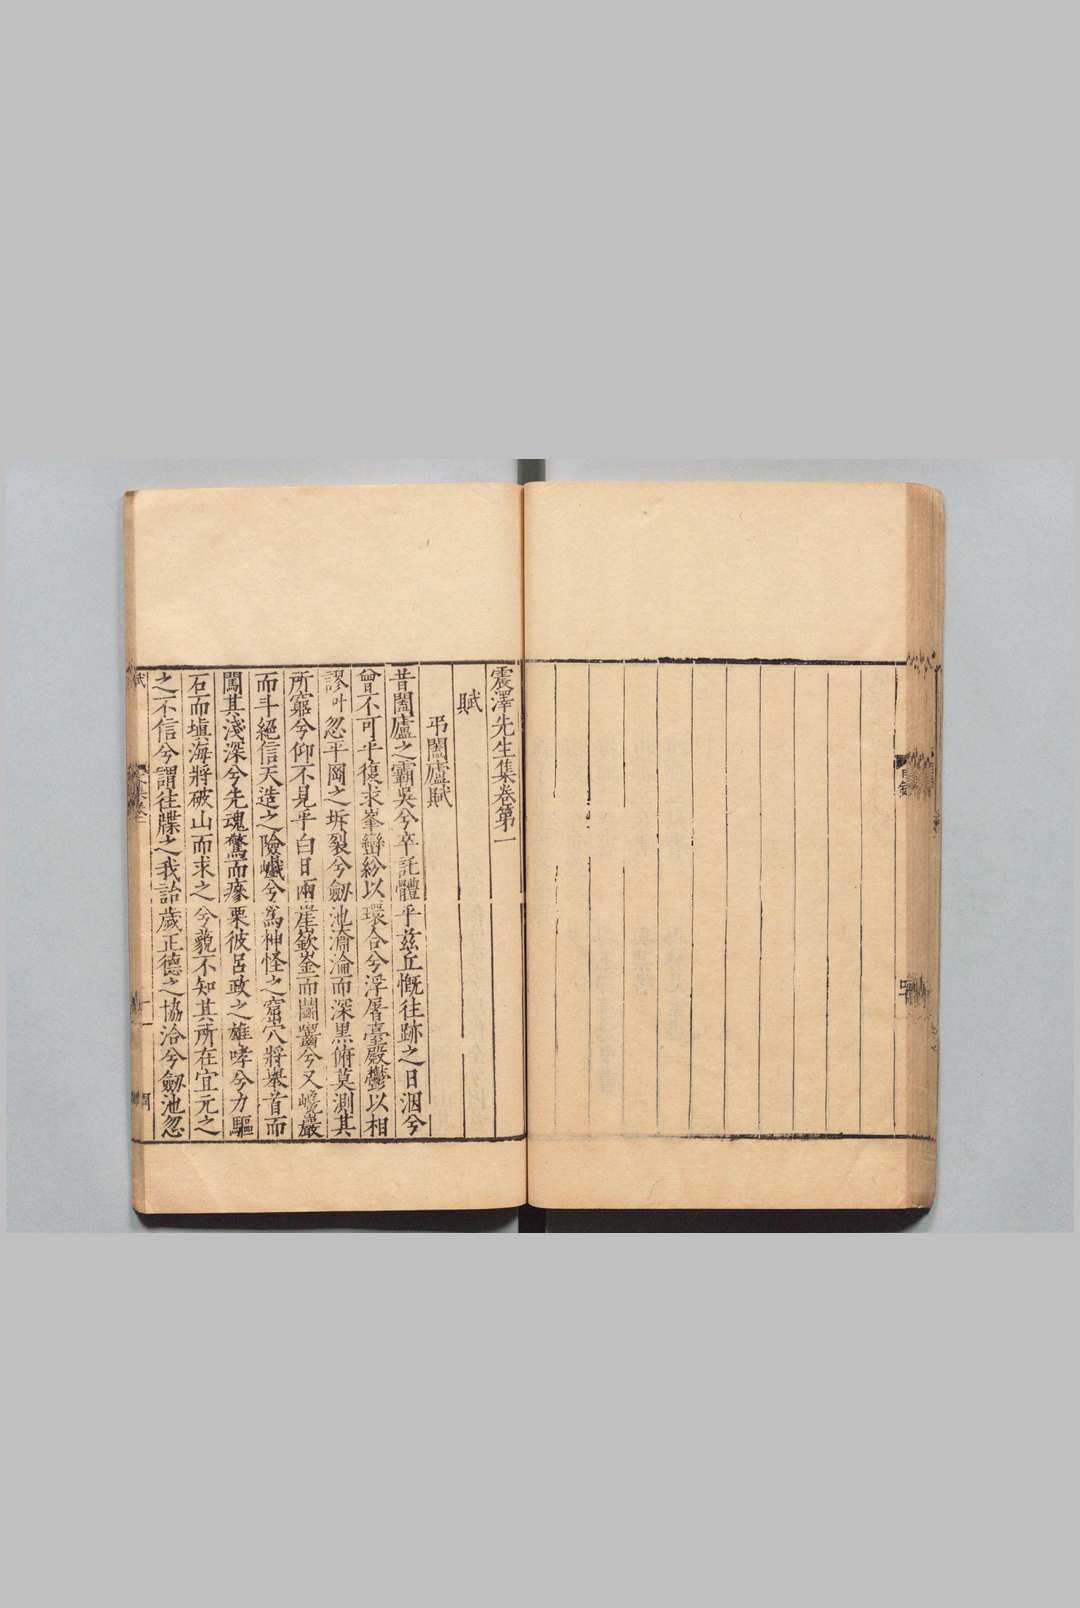 震澤先生集卷第一
賦
弔闔廬賦
昔闔廬之霸吳兮卒託體乎茲丘慨往跡之日湮兮
曾不可乎復求峯巒紛以環合兮浮屠臺殿鬱以相
謬叶忽平岡之坼裂兮劒池瀹淪而深黑俯莫測其
所窮兮仰不見乎白日兩崖嶔崟而鬭齧兮又巉巖
而斗絕信天造之險巇兮爲神怪之窟穴將舉首而
闖其淺深兮先魂驚而瘮栗彼呂政之雄哮兮力驅
石而塡海將破山而求之兮藐不知其所在宜元之
之不信兮謂往牒之我詒歲正德之協洽兮劒池忽